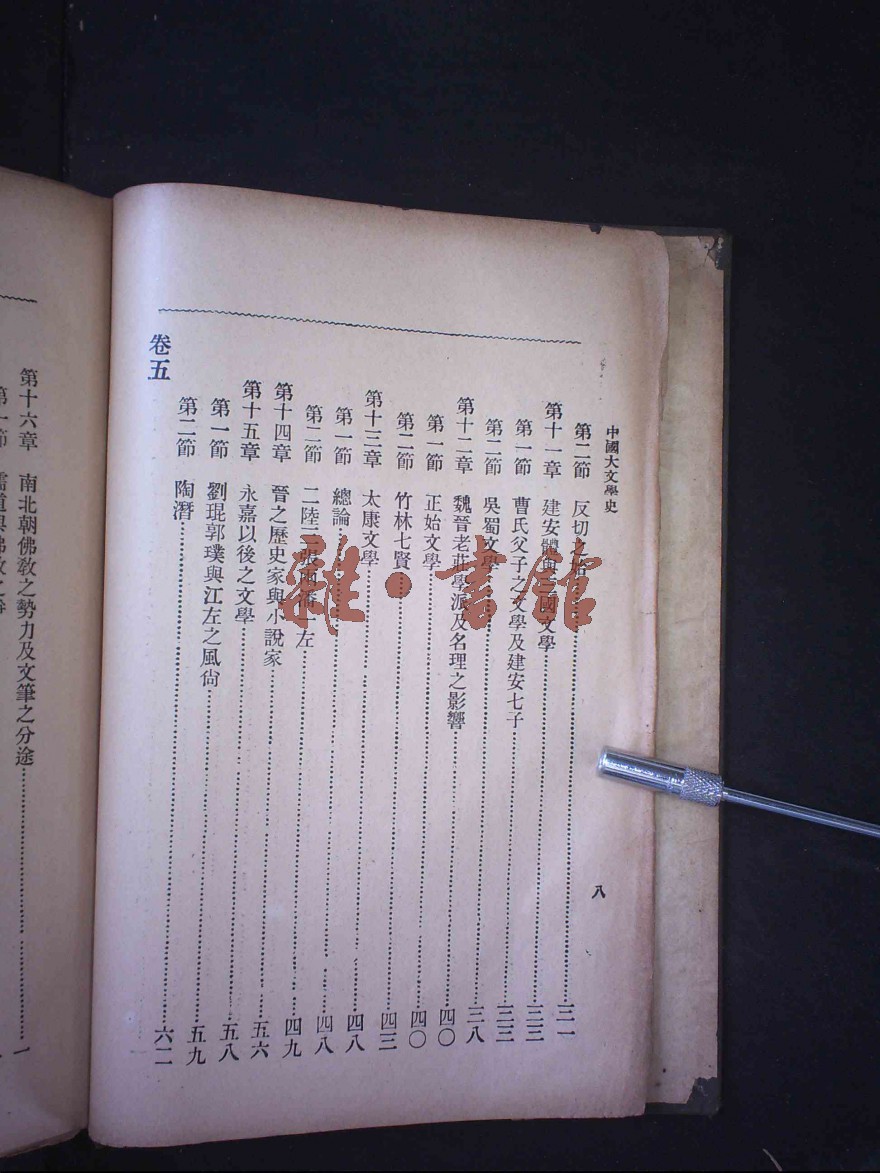 中國大文學史
八
第二節 反切之始 三一
第十一章 建安體與三國文學 三三
第一節 曹氏父子之文學及建安七子 三三
第二節 吳蜀文學 三八
第十二章 魏晉老莊學派及名理之影響 四〇
第一節 正始文學 四〇
第二節 竹林七賢 四三
第十三章 太康文學 四八
第一節 總論 四八
第二節 二陸三張兩潘一左 四九
第十四章 晉之歷史家與小說家 五六
第十五章 永嘉以後之文學 五八
第一節 劉琨郭璞與江左之風尙 五九
第二節 陶潛 六二
卷五
第十六章 南北朝佛教之勢力及文筆之分途 一
第一節 儒道與佛教之
雜·書館